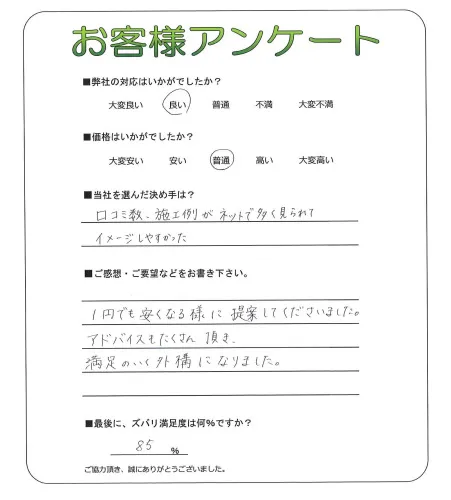 お客様アンケート
■弊社の対応はいかがでしたか？
大変良い 良い 普通 不満 大変不満
■価格はいかがでしたか？
大変安い 安い 普通 高い 大変高い
■当社を選んだ決め手は？
口コミ数、施工例がネットで多く見られて
イメージしやすかった
■ご感想・ご要望などをお書き下さい。
1円でも安くなる様に提案してくださいました。
アドバイスもたくさん頂き、
満足のいく外構になりました。
■最後に、ズバリ満足度は何%ですか？
85 %
ご協力頂き、誠にありがとうございました。